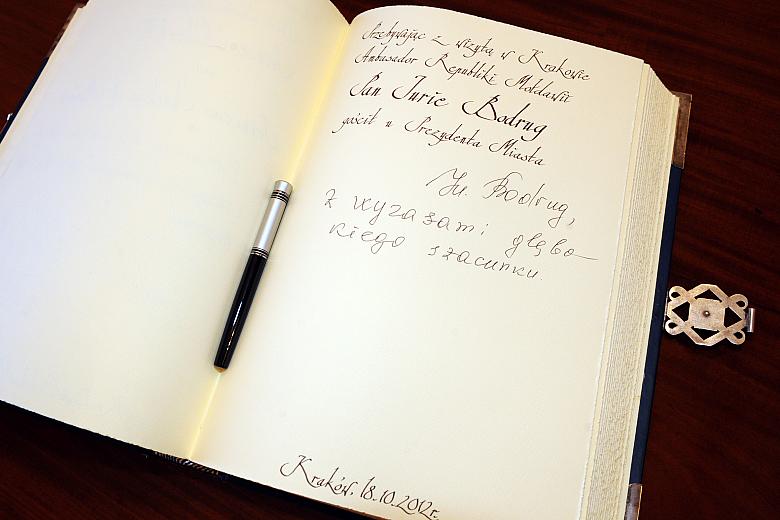 Przebywając z wizytą w Krakowie
Ambasador Republiki Mołdawii
Pan Iurie Bodrug
gościł u Prezydenta Miasta
Iu. Bodrug,
z wyrazami głębo-
kiego szacunku.
Kraków, 18.10.2012r.